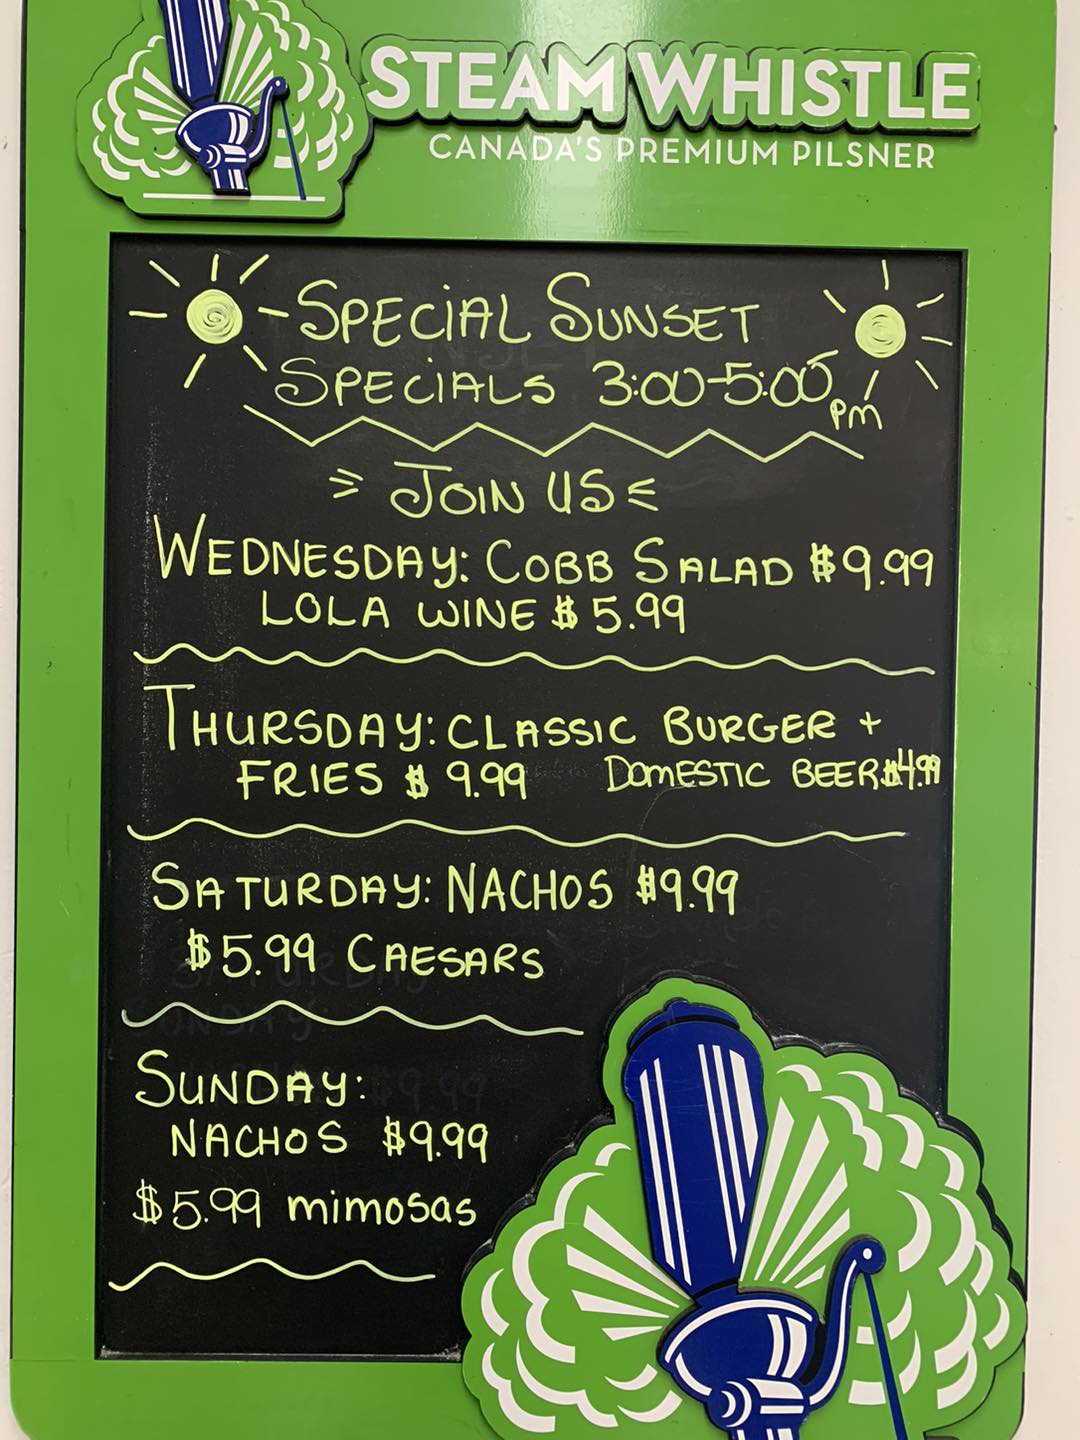 STEAM WHISTLE
CANADA'S PREMIUM PILSNER
SPECIAL SUNSET
SPECIALS 3:00-5:00 PM
JOIN US
WEDNESDAY: COBB SALAD $9.99
LOLA WINE $5.99
THURSDAY: CLASSIC BURGER +
FRIES $9.99 DOMESTIC BEER $4.99
SATURDAY: NACHOS $9.99
$5.99 CAESARS
SUNDAY:
NACHOS $9.99
$5.99 mimosas